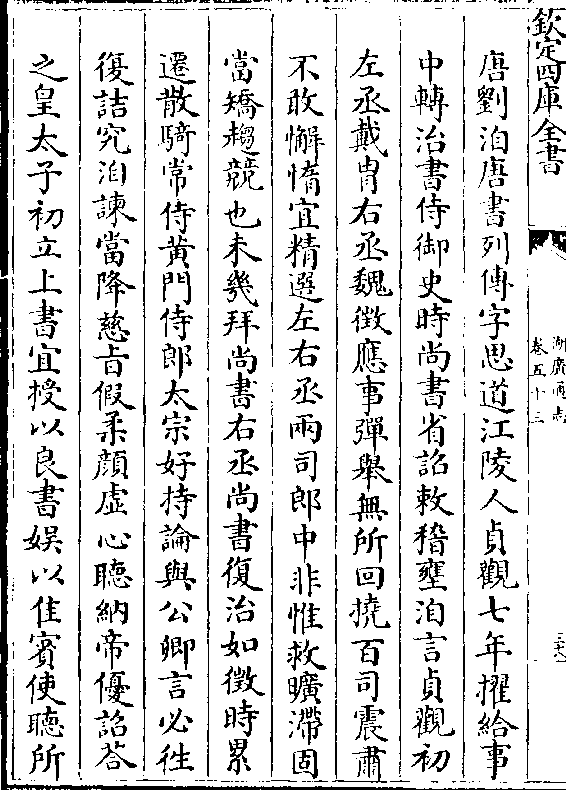 欽定四庫全書
湖廣通志
卷五十三
三十八
唐劉洎唐書列傳字思道江陵人貞觀七年擢給事
中轉治書侍御史時尚書省詔敕稽壅洎言貞觀初
左丞戴胄右丞魏徵應事彈舉無所回撓百司震肅
不敢懈惰宜精選左右丞兩司郎中非惟救曠滯固
當矯趨競也未幾拜尚書右丞尚書復治如徵時累
遷散騎常侍黃門侍郎太宗好持論與公卿言必往
復詰究洎諫當降慈旨假柔顔虛心聽納帝優詔荅
之皇太子初立上書宜授以良書娛以佳賓使聽所